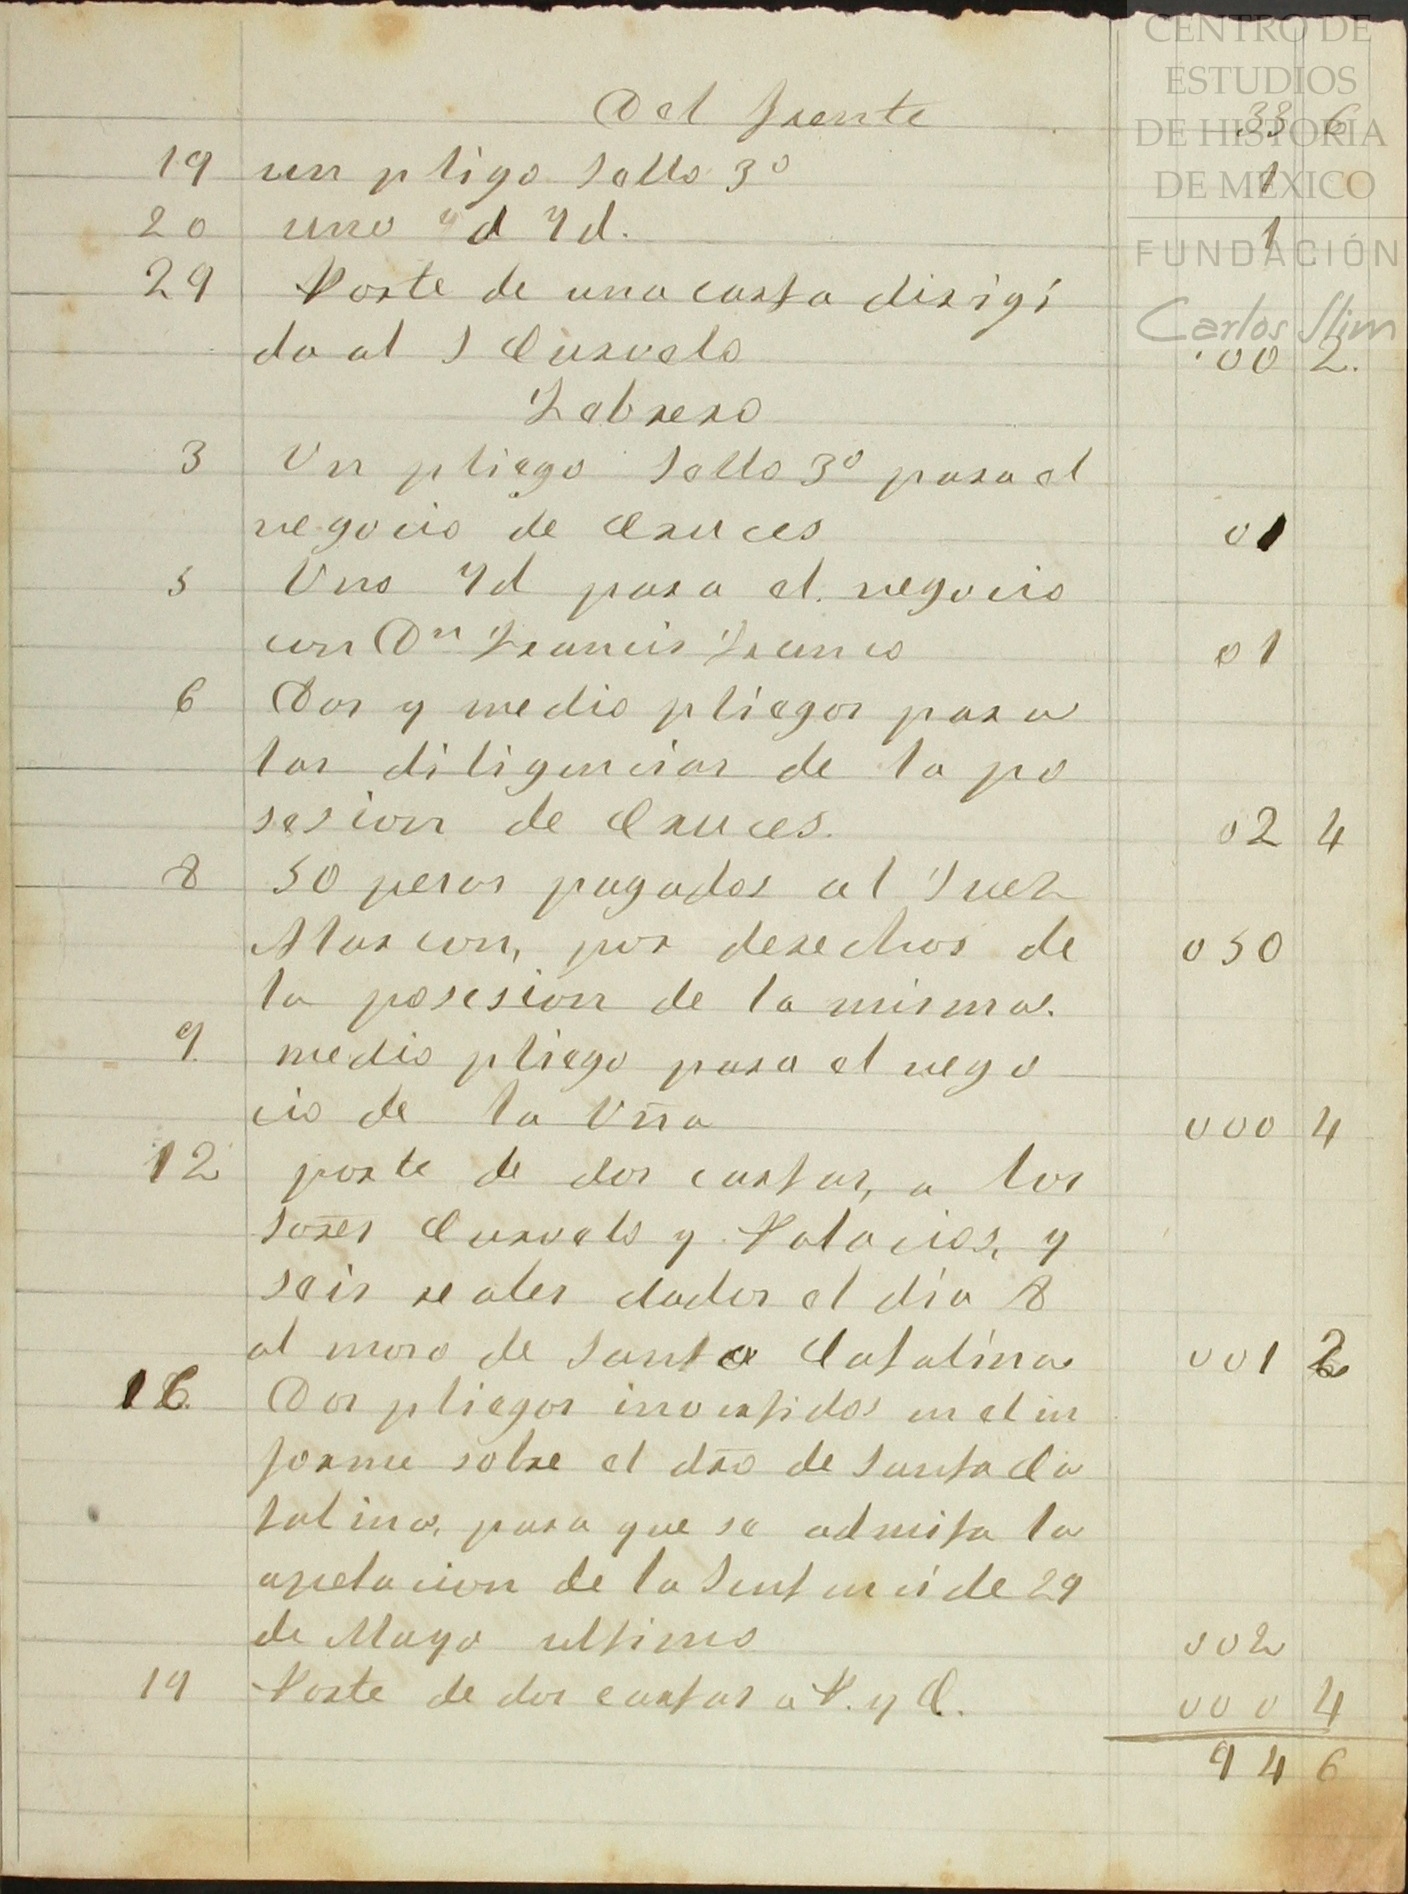 CENTRO DE
ESTUDIOS
DE HISTORIA
DE MEXICO
FUNDACIÓN
Carlos Slim
Del frente 33 6
19 un pligo sello 3º 1
20 uno Yd Yd. 1
29 Porte de una carta dirigi
da al S Curvelo 00 2.
Febrero
3 Un pliego sello 3º para el
negocio de Cruces 01
5 Uno Yd para el negocio
con Dn Francis Franco 01
6 Dos y medio pliegos para
las diligencias de la po
sesion de Cruces. 02 4
8 50 pesos pagados al Juez
Alarcon, por derechos de 050
la posesion de la misma.
9. medio pliego para el nego
cio de la Uña 000 4
12 porte de dos cartas, a los
Soreś Curvelo y Palacios, y
seis reales dados el dia 8
al moso de Santa Catalina 001 2
16. Dos pliegos invertidos en el in
forme sobre el dr̃o de Santa Ca
talina, para que se admita la
apelacion de la Sentenci de 29
de Mayo ultimo 002
19 Porte de dos cartas a P. y C. 000 4
94 6